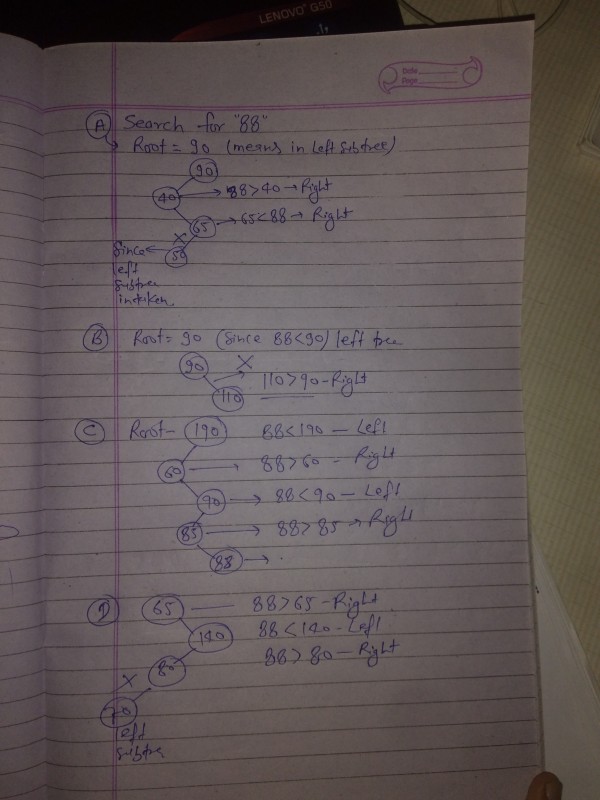 LENOVO G50
Date
Page
A Search for "88"
Root = 90 (means in Left Subtree)
90
40 → 88>40 → Right
65 → 65<88 → Right
X
50
Since
left
Subtree
intaken.
B Root = 90 (Since 88<90) left tree
90 X
110>90 - Right
110
C Root - 190 88<190 - Left
60 → 88>60 - Right
90 → 88<90 - Left
85 → 88>85 → Right
88 → .
D 65 — 88>65 - Right
140 88<140 - Left
80 88>80 - Right
X
left
Subtre